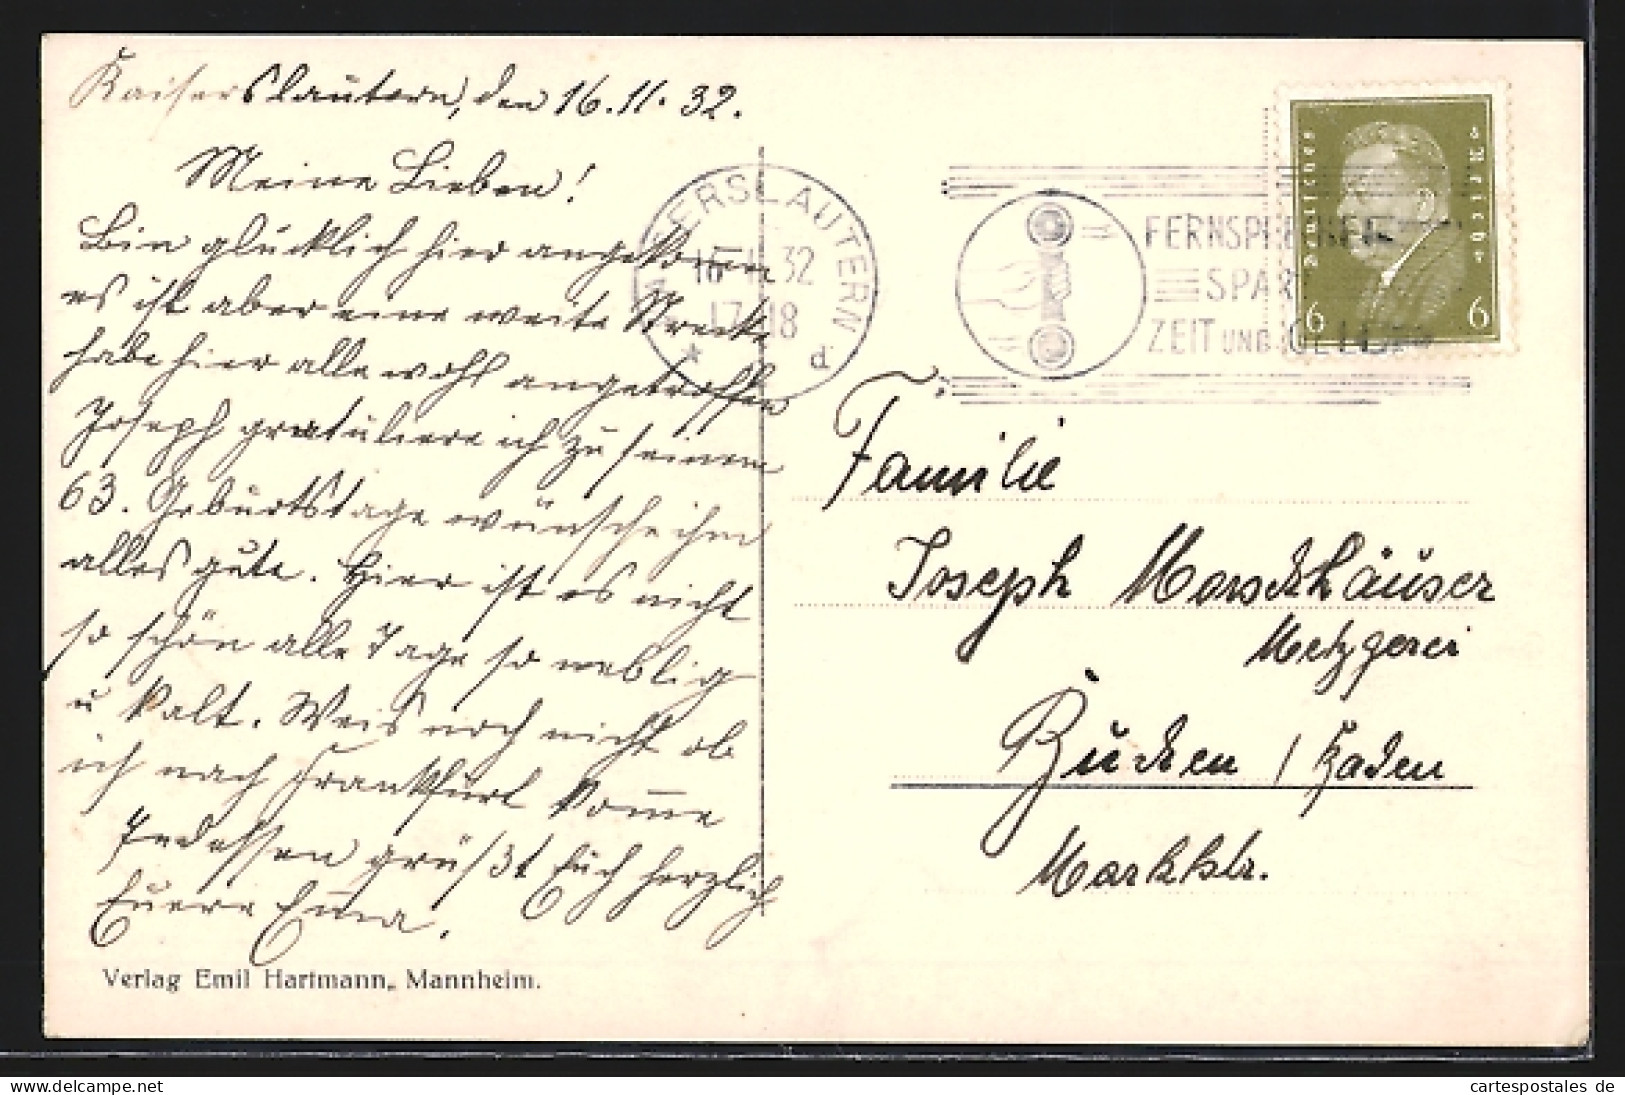 Kaiserslautern, den 16.11.32.
Meine Lieben!
Bin glücklich hier angekommen
es ist aber eine weite Strecke
habe hier alle wohl angetroffen
Joseph gratuliere ich zu seinem
63. Geburtstage wünsche ihm
alles gute. Hier ist es nicht
so schön alle Tage so neblig
u kalt. Weis noch nicht ob
ich nach Frankfurt komme
Indessen grüßt Euch herzlich
Euere Emma.
Verlag Emil Hartmann, Mannheim.
KAISERSLAUTERN
16 11 32
17-18
* d
FERNSPRECHER
SPAR
ZEIT UND GELD
Deutsches Reich
6 6
Familie
Joseph Morschhäuser
Metzgerei
Buchen / Baden
Marktstr.
cartespostales de